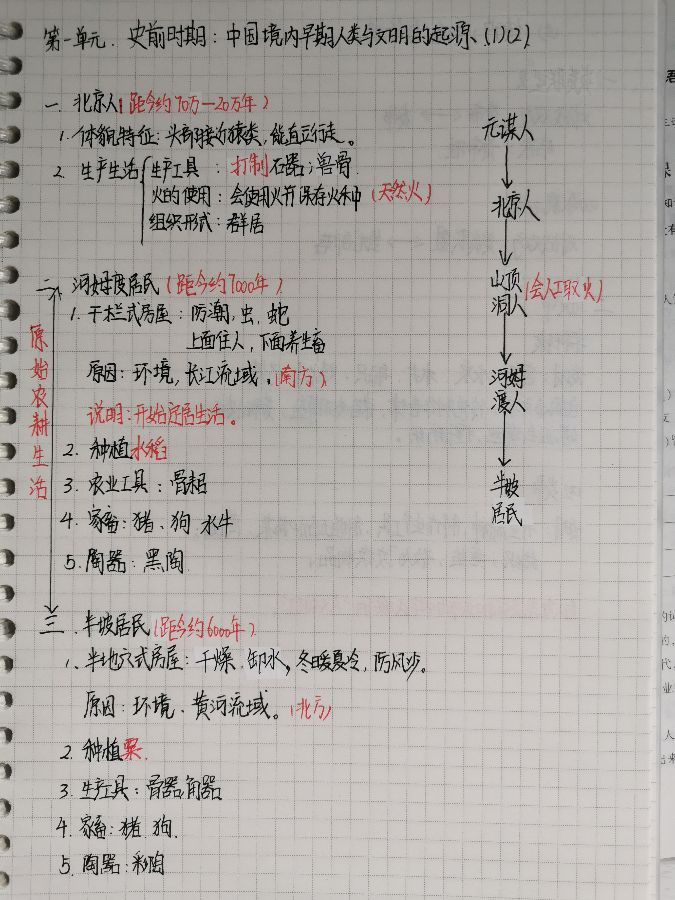 第一单元、史前时期:中国境内早期人类与文明的起源、(1)(2)
一、北京人(距今约70万—20万年)
1.体貌特征:头部接近猿类,能直立行走。
2.生产生活 生产工具:打制石器;兽骨
火的使用:会使用火并保存火种(天然火)
组织形式:群居
二、河姆渡居民(距今约7000年)
1.干栏式房屋:防潮,虫,蛇
上面住人,下面养牲畜
原因:环境,长江流域。(南方)
说明:开始定居生活。
2.种植水稻
3.农业工具:骨耜
4.家畜:猪、狗 水牛
5.陶器:黑陶
原始农耕生活
三、半坡居民(距今约6000年)
1、半地穴式房屋:干燥,卸水,冬暖夏冷,防风沙。
原因:环境、黄河流域。(北方)
2.种植粟.
3.生产具:骨器,角器
4.家畜:猪 狗.
5.陶器:彩陶
元谋人
北京人
山顶
洞人(会人工取火)
河姆
渡人
半坡
居民